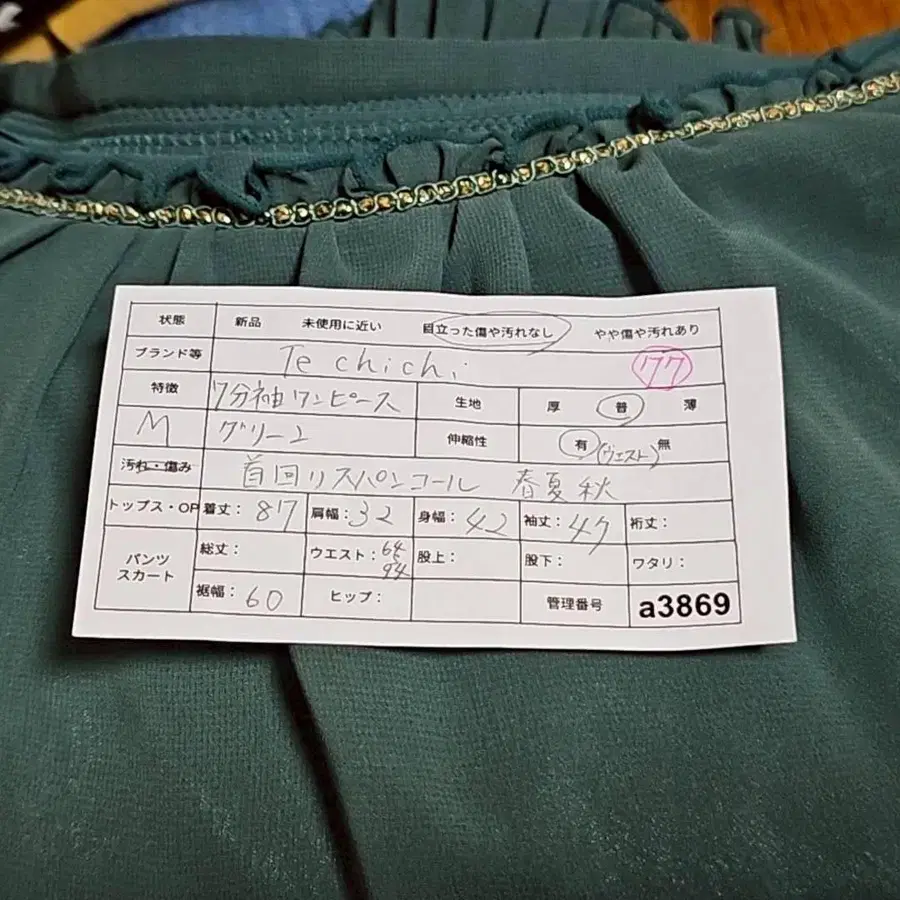 状態 新品 未使用に近い 目立った傷や汚れなし やや傷や汚れあり
ブランド等 Te chichi 77
特徴 7分袖ワンピース 生地 厚 普 薄
M グリーン 伸縮性 有 (ウエスト) 無
汚れ・傷み 首回りスパンコール 春夏秋
トップス・OP 着丈:87 肩幅:32 身幅:42 袖丈:47 裄丈:
パンツ スカート 総丈: ウエスト:64 94 股上: 股下: ワタリ:
裾幅:60 ヒップ: 管理番号 a3869